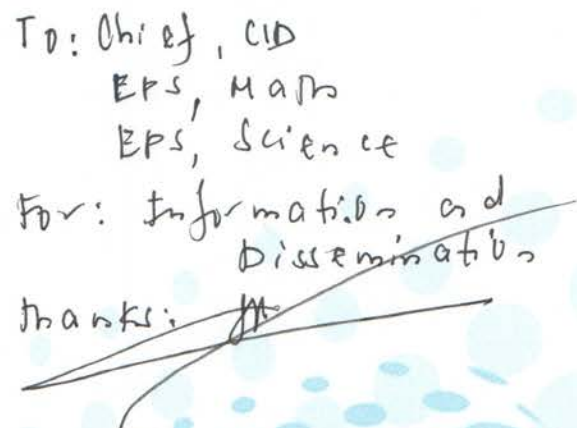 To: Chief, CID
EPS, Math
EPS, Science
For: Information and
Dissemination
Thanks: